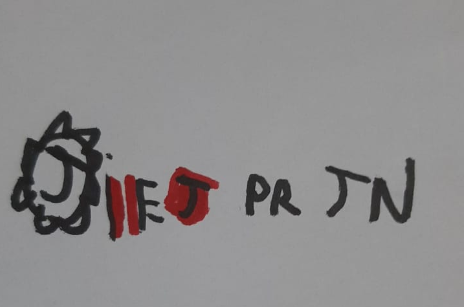 J IIE J PR JN